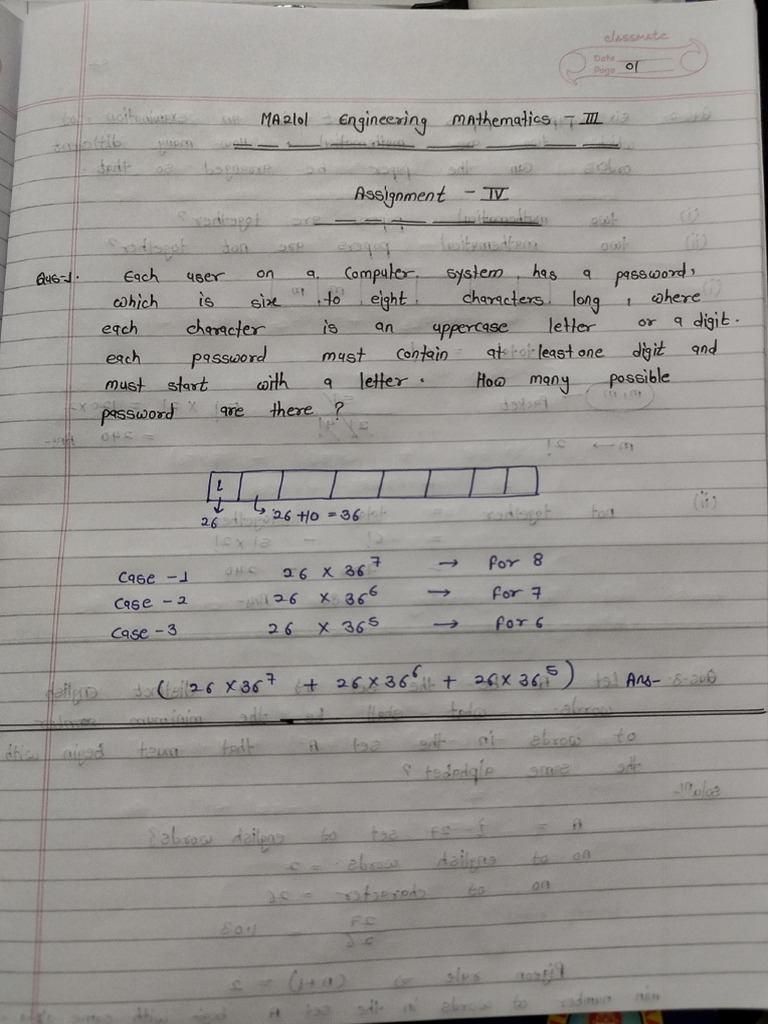 classmate
Date
Page 01
MA2101 Engineering Mathematics - III
Assignment - IV
Qus-1. Each user on a computer system has a password,
which is six to eight characters long, where
each character is an uppercase letter or a digit.
each password must contain at least one digit and
must start with a letter. How many possible
password are there ?
L
26 26+10 = 36
Case - 1 26 × 36⁷ → for 8
Case - 2 26 × 36⁶ → for 7
Case - 3 26 × 36⁵ → for 6
( 26 × 36⁷ + 26 × 36⁶ + 26 × 36⁵ ) Ans-